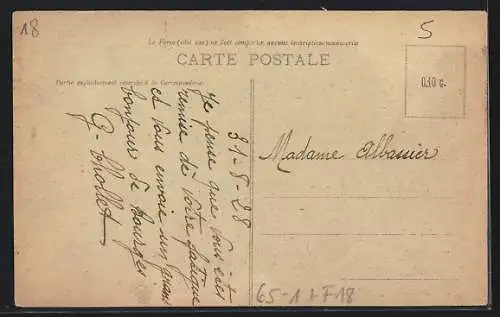 18
5
Le Franc (côté vue) ne doit comporter aucune inscription manuscrite
CARTE POSTALE
Partie exclusivement réservée à la Correspondance
0.10 c.
31-8-28
Je pense que vous êtes
remise de votre fatigue
et vous envoie un grand
bonjour de Bourges
G. Chollet
Madame Albassier
65-1 F18